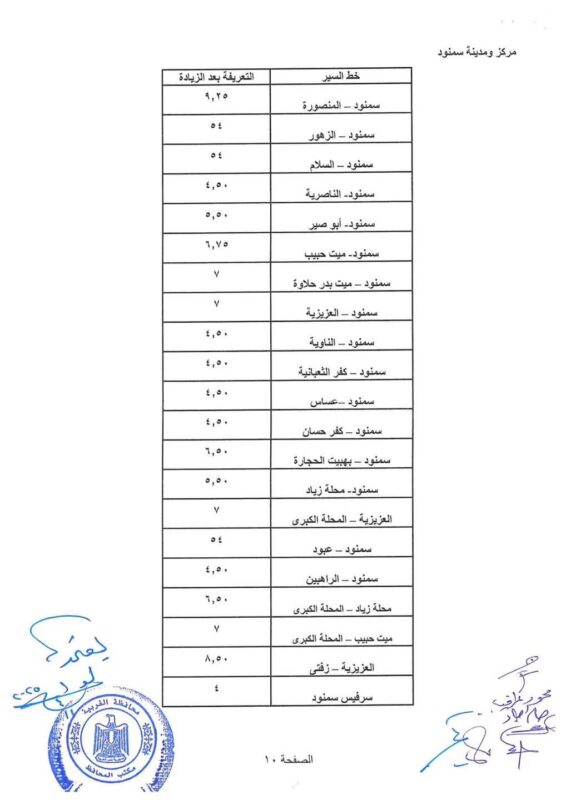 مركز ومدينة سمنود
خط السير	التعريفة بعد الزيادة
سمنود – المنصورة	٩,٢٥
سمنود – الزهور	٥٤
سمنود – السلام	٥٤
سمنود- الناصرية	٤,٥٠
سمنود- أبو صير	٥,٥٠
سمنود- ميت حبيب	٦,٧٥
سمنود – ميت بدر حلاوة	٧
سمنود – العزيزية	٧
سمنود – الناوية	٤,٥٠
سمنود – كفر الثعبانية	٤,٥٠
سمنود –عساس	٤,٥٠
سمنود – كفر حسان	٤,٥٠
سمنود – بهبيت الحجارة	٦,٥٠
سمنود- محلة زياد	٥,٥٠
العزيزية – المحلة الكبرى	٧
سمنود – عبود	٥٤
سمنود – الراهبين	٤,٥٠
محلة زياد – المحلة الكبرى	٦,٥٠
ميت حبيب – المحلة الكبرى	٧
العزيزية – زفتي	٨,٥٠
سرفيس سمنود	٤
محافظة الغربية
مكتب المحافظ
الصفحة ١٠